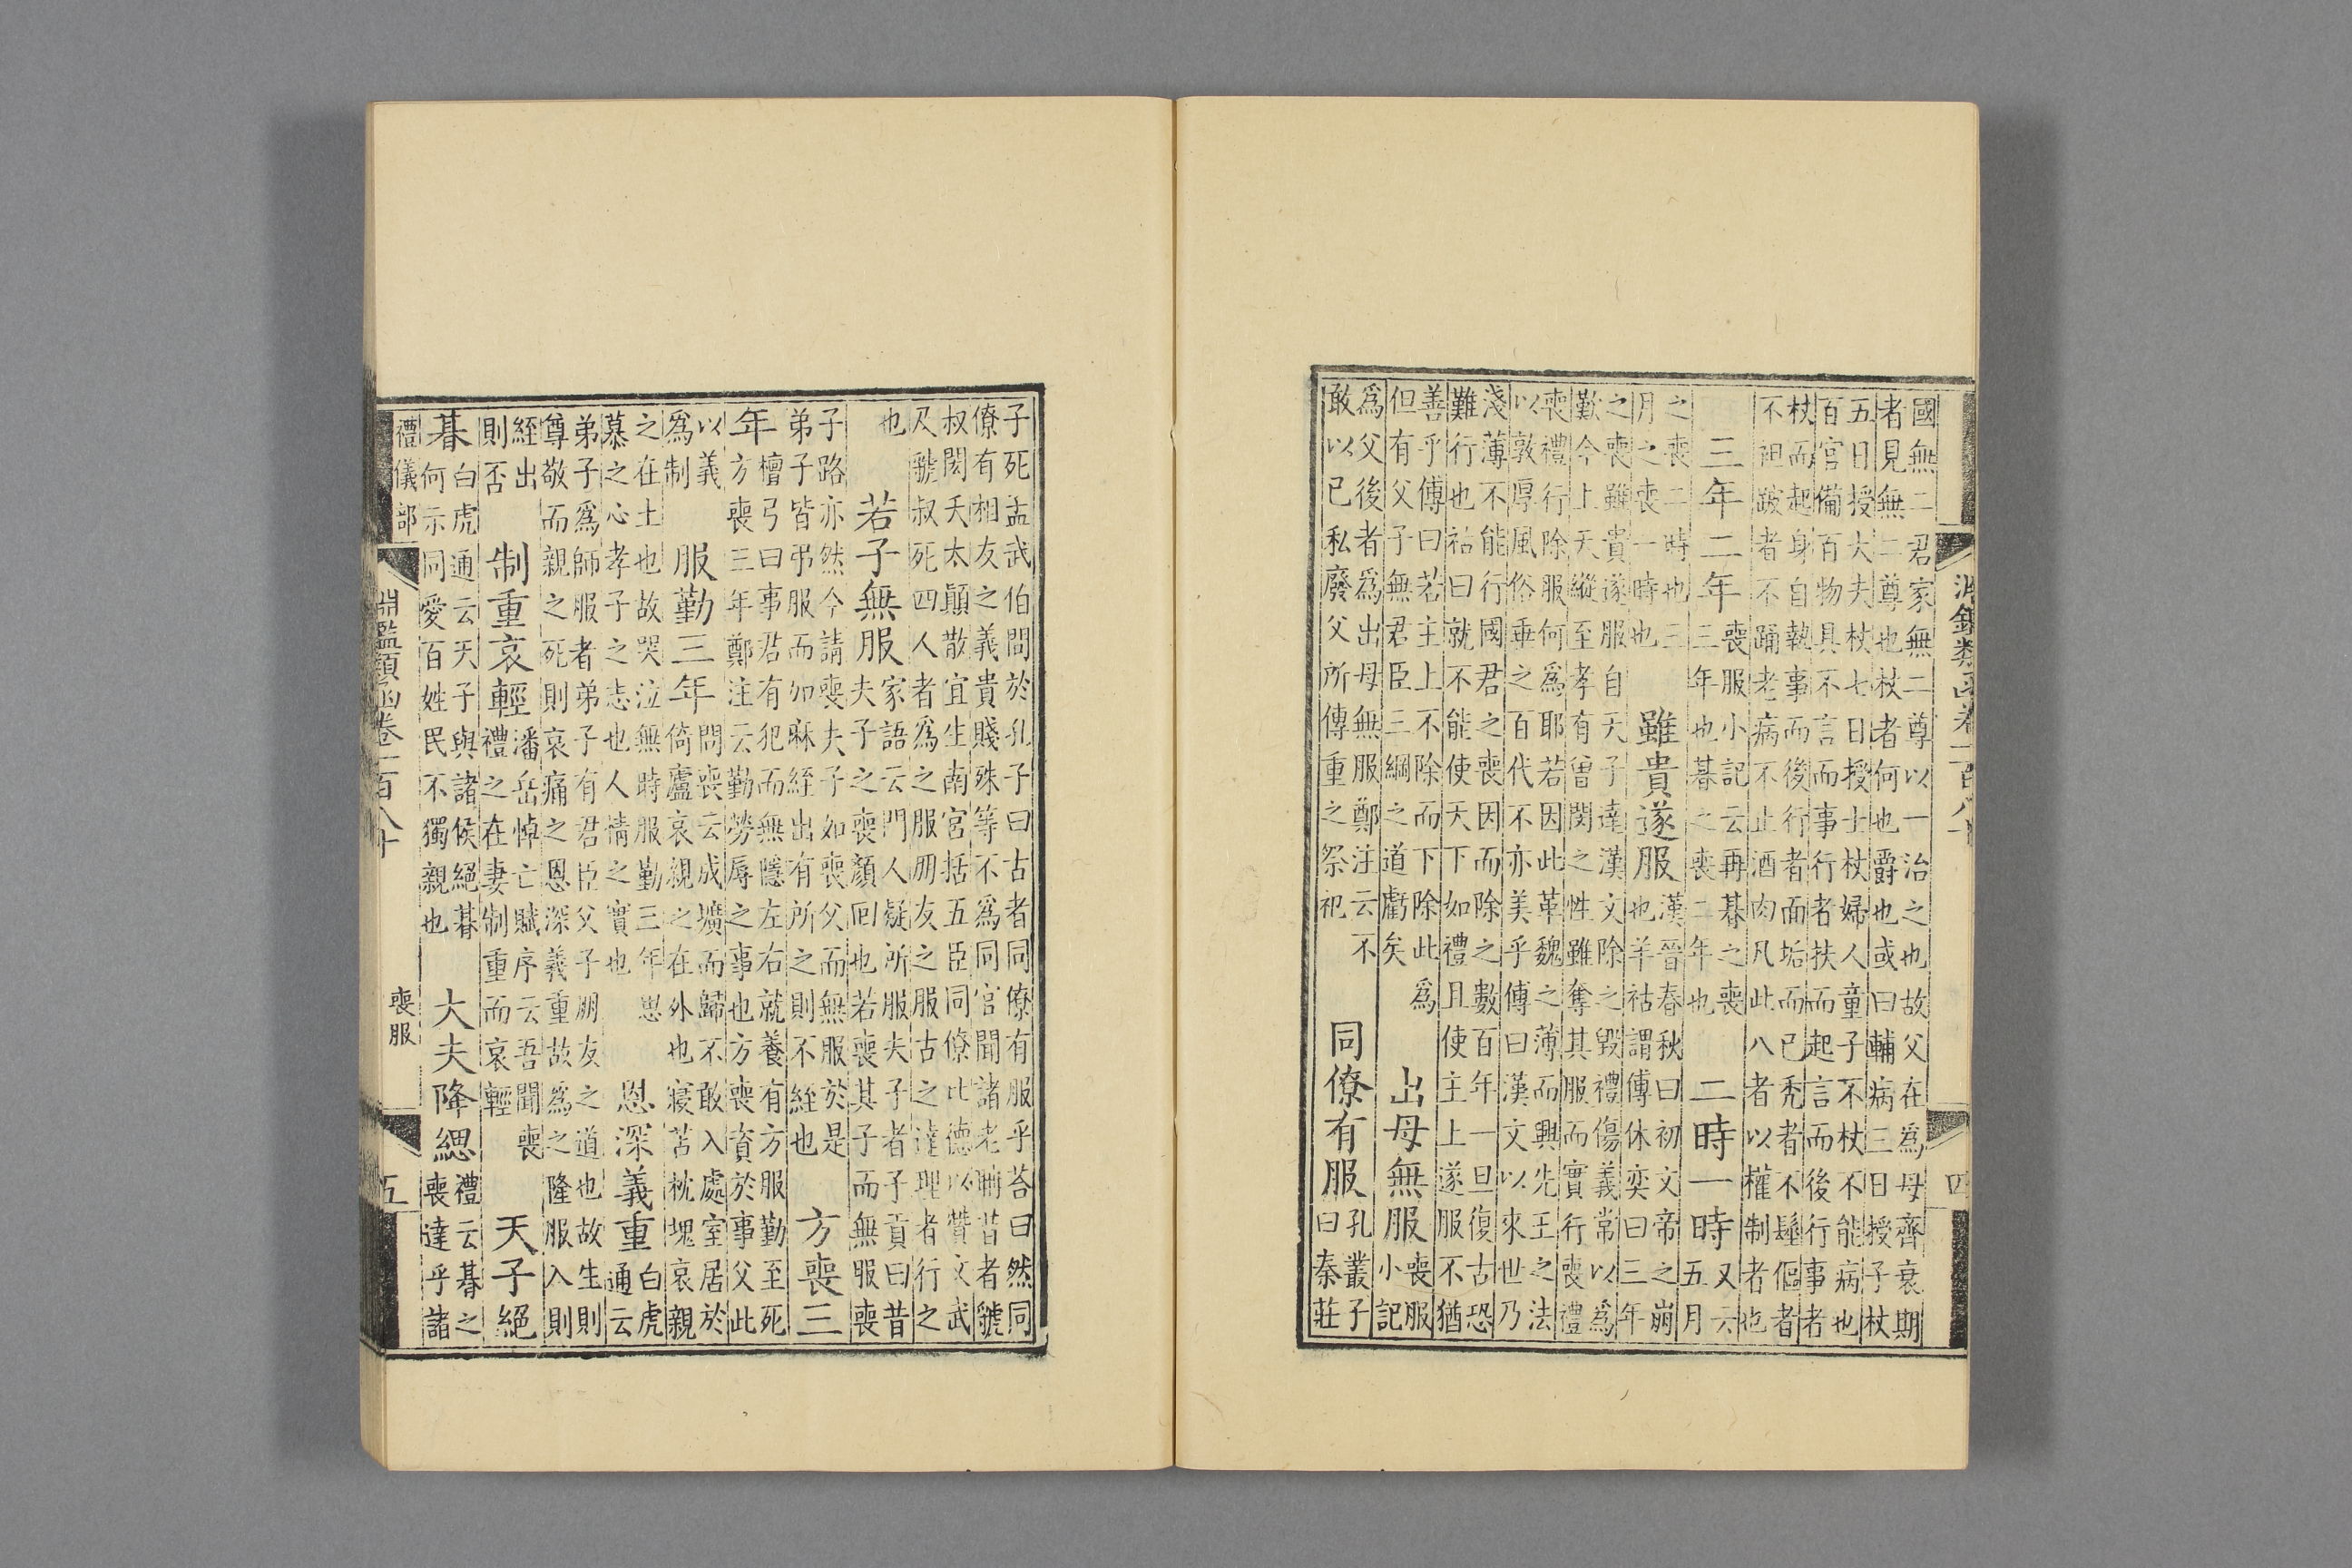 淵鑑類函卷一百八十 四
國無二君家無二尊以一治之也故父在爲母齊衰期
者見無二尊也杖者何也爵也或曰輔病三日授子杖
五日授大夫杖七日授士杖婦人童子不杖不能病也
百官備百物具不言而事行者扶而起言而後行事者
杖而起身自執事而後行者面垢而已禿者不髽傴者
不袒跛者不踊老病不止酒肉凡此八者以權制者也
三年二年
喪服小記云再朞之喪
三年也朞之喪二年也
二時一時
又云
五月
之喪二時也三
月之喪一時也
雖貴遂服
漢晉春秋曰初文帝之崩
也羊祜謂傅休奕曰三年
之喪雖貴遂服自天子達漢文除之毀禮傷義常以爲
歎今上天縱至孝有曾閔之性雖奪其服而實行喪禮
喪禮行除服何爲耶若因此革魏之薄而興先王之法
以敦厚風俗垂之百代不亦美乎傅曰漢文以來世乃
淺薄不能行國君之喪因而除之數百年一旦復古恐
難行也祜曰就不能使天下如禮且使主上遂服不猶
善乎傅曰若主上不除而下除此爲
但有父子無君臣三綱之道虧矣
出母無服
喪服
小記
爲父後者爲出母無服鄭注云不
敢以已私廢父所傳重之祭祀
同僚有服
孔叢子
曰秦莊
子死孟武伯問於孔子曰古者同僚有服乎荅曰然同
僚有相友之義貴賤殊等不爲同官聞諸老聃昔者虢
叔閎夭太顛散宜生南宮括五臣同僚比德以贊文武
及虢叔死四人者爲之服朋友之服古之達理者行之
也
若子無服
家語云門人疑所服夫子者子貢曰昔
夫子之喪顏回也若喪其子而無服喪
子路亦然今請喪夫子如喪父而無服於是
弟子皆弔服而加麻絰出有所之則不絰也
方喪三
年
檀弓曰事君有犯而無隱左右就養有方服勤至死
方喪三年鄭注云勤勞辱之事也方喪資於事父此
以義
爲制
服勤三年
問喪云成壙而歸不敢入處室居於
倚廬哀親之在外也寢苫枕塊哀親
之在土也故哭泣無時服勤三年思
慕之心孝子之志也人情之實也
恩深義重
白虎
通云
弟子爲師服者弟子有君臣父子朋友之道也故生則
尊敬而親之死則哀痛之恩深義重故爲之隆服入則
絰出
則否
制重哀輕
潘岳悼亡賦序云吾聞喪
禮之在妻制重而哀輕
天子絕
朞
白虎通云天子與諸侯絕朞
何示同愛百姓民不獨親也
大夫降緦
禮云朞之
喪達乎諸
禮儀部 淵鑑類函卷一百八十 喪服 五